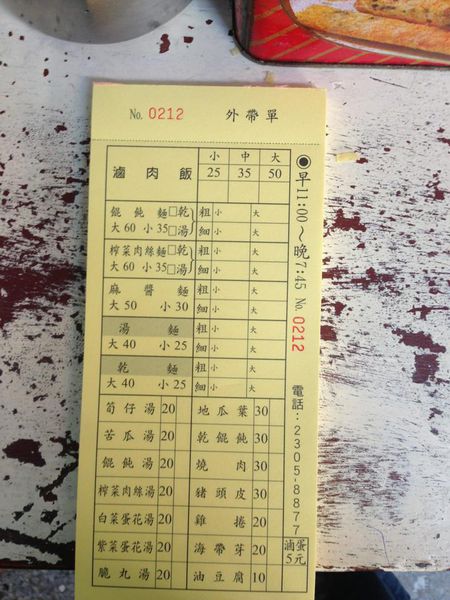 No. 0212 外帶單
滷肉飯 小 中 大
25 35 50
餛飩麵 □乾 粗 小 大
大60 小35 □湯 細 小 大
榨菜肉絲麵 □乾 粗 小 大
大60 小35 □湯 細 小 大
麻醬麵 粗 小 大
大50 小30 細 小 大
湯麵 粗 小 大
大40 小25 細 小 大
乾麵 粗 小 大
大40 小25 細 小 大
筍仔湯 20 地瓜葉 30
苦瓜湯 20 乾餛飩 30
餛飩湯 20 燒肉 30
榨菜肉絲湯 20 豬頭皮 30
白菜蛋花湯 20 雞捲 20
紫菜蛋花湯 20 海帶芽 20
脆丸湯 20 油豆腐 10
滷蛋
5元
◉早11:00～晚7:45 No. 0212
電話:2305-8877